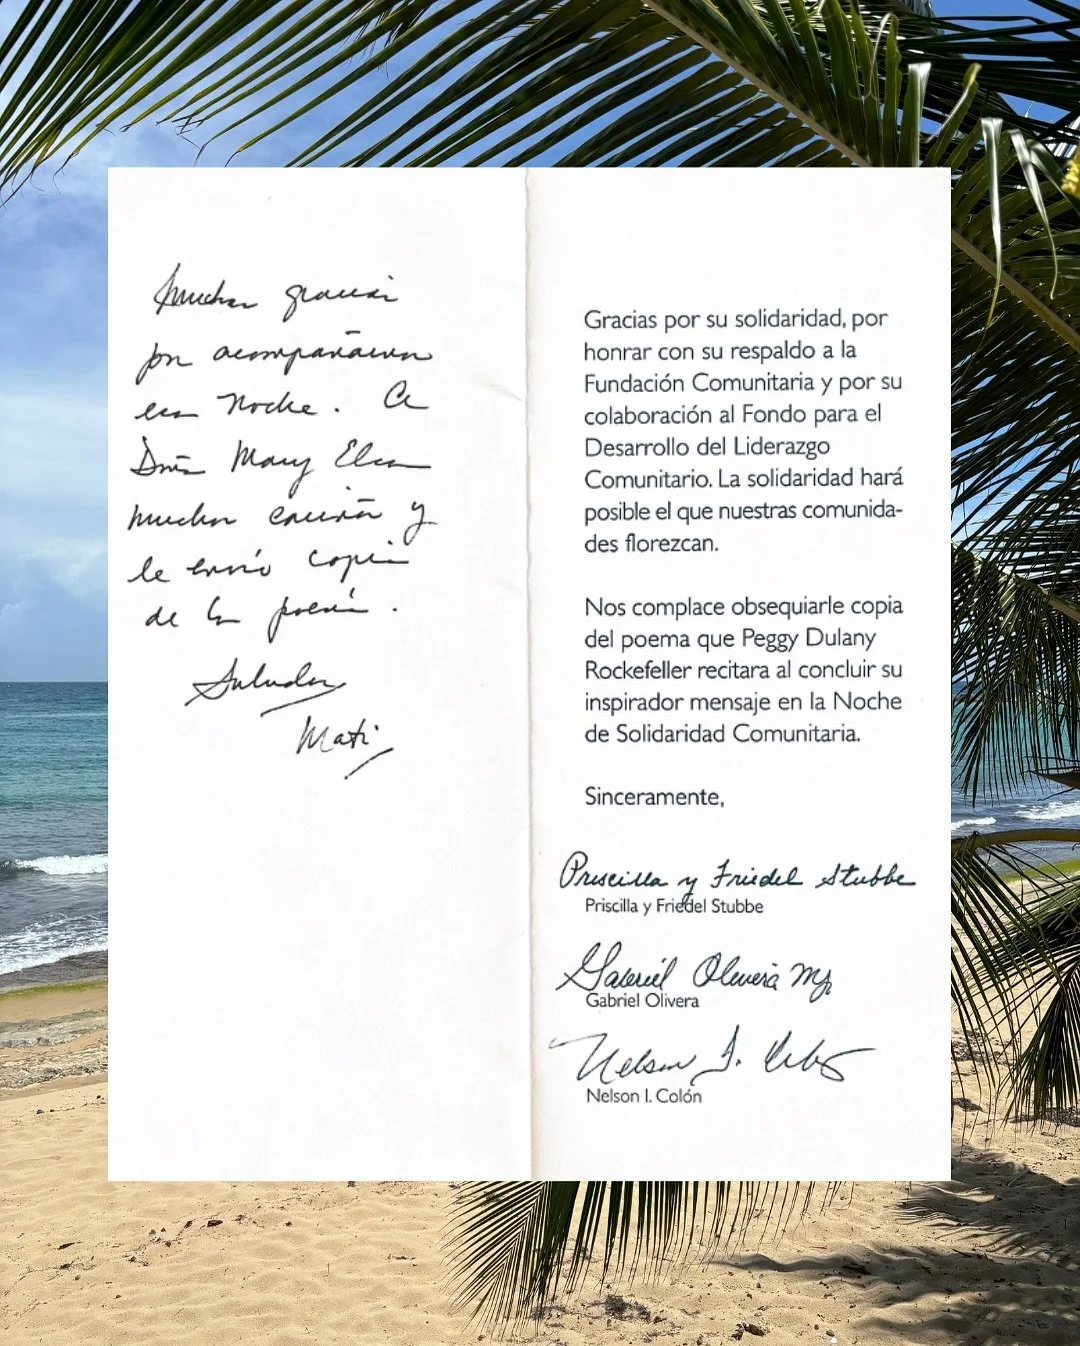 Muchas gracias
por acompañarnos
esa Noche. A
Doña Mary Elsa
mucho cariño y
le envío copia
de la poesía.
Saludos
Mati
Gracias por su solidaridad, por
honrar con su respaldo a la
Fundación Comunitaria y por su
colaboración al Fondo para el
Desarrollo del Liderazgo
Comunitario. La solidaridad hará
posible el que nuestras comunida-
des florezcan.
Nos complace obsequiarle copia
del poema que Peggy Dulany
Rockefeller recitara al concluir su
inspirador mensaje en la Noche
de Solidaridad Comunitaria.
Sinceramente,
Priscilla y Friedel Stubbe
Priscilla y Friedel Stubbe
Gabriel Olivera
Gabriel Olivera
Nelson I. Colón
Nelson I. Colón